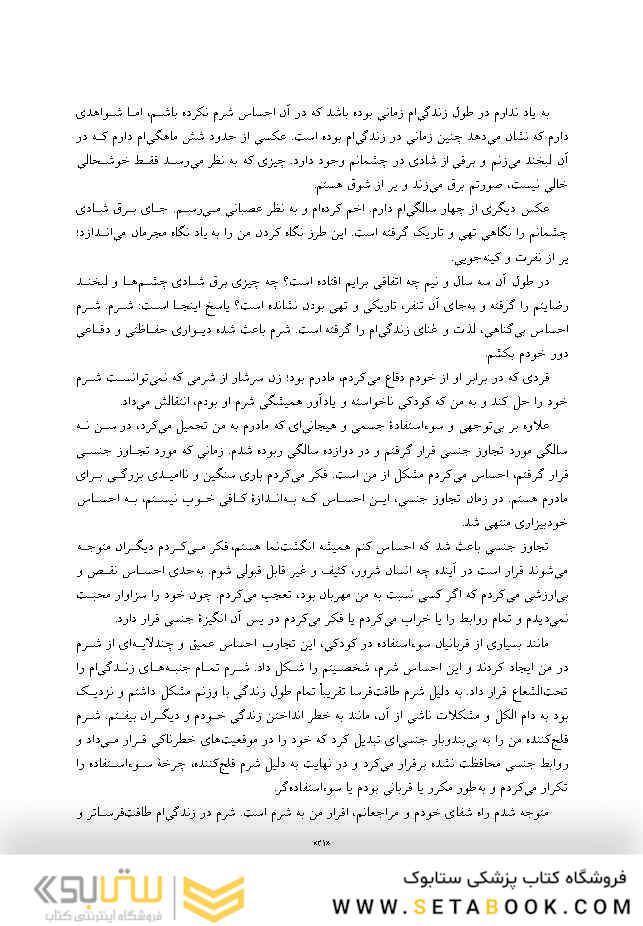 به یاد ندارم در طول زندگی‌ام زمانی بوده باشد که در آن احساس شرم نکرده باشم، اما شواهدی
دارم که نشان می‌دهد چنین زمانی در زندگی‌ام بوده است. عکسی از حدود شش ماهگی‌ام دارم که در
آن لبخند می‌زنم و برقی از شادی در چشمانم وجود دارد. چیزی که به نظر می‌رسد فقط خوشحالی
خالی نیست، صورتم برق می‌زند و پر از شوق هستم.
عکس دیگری از چهار سالگی‌ام دارم. اخم کرده‌ام و به نظر عصبانی می‌رسم. جای برق شادی
چشمانم را نگاهی تهی و تاریک گرفته است. این طرز نگاه کردن من را به یاد نگاه مجرمان می‌اندازد؛
پر از نفرت و کینه‌جویی.
در طول آن سه سال و نیم چه اتفاقی برایم افتاده است؟ چه چیزی برق شادی چشم‌ها و لبخند
رضایتم را گرفته و به‌جای آن تنفر، تاریکی و تهی بودن نشانده است؟ پاسخ اینجا است: شرم. شرم
احساس بی‌گناهی، لذت و غنای زندگی‌ام را گرفته است. شرم باعث شده دیواری حفاظتی و دفاعی
دور خودم بکشم.
فردی که در برابر او از خودم دفاع می‌کردم، مادرم بود؛ زن سرشار از شرمی که نمی‌توانست شرم
خود را حل کند و به من که کودکی ناخواسته و یادآور همیشگی شرم او بودم، انتقالش می‌داد.
علاوه بر بی‌توجهی و سوءاستفادهٔ جسمی و هیجانی‌ای که مادرم به من تحمیل می‌کرد، در سن نه
سالگی مورد تجاوز جنسی قرار گرفتم و در دوازده سالگی ربوده شدم. زمانی که مورد تجاوز جنسی
قرار گرفتم، احساس می‌کردم مشکل از من است. فکر می‌کردم باری سنگین و ناامیدی بزرگی برای
مادرم هستم. در زمان تجاوز جنسی، این احساس که به‌اندازهٔ کافی خوب نیستم، به احساس
خودبیزاری منتهی شد.
تجاوز جنسی باعث شد که احساس کنم همیشه انگشت‌نما هستم، فکر می‌کردم دیگران متوجه
می‌شوند قرار است در آینده چه انسان شرور، کثیف و غیر قابل قبولی شوم. به‌حدی احساس نقص و
بی‌ارزشی می‌کردم که اگر کسی نسبت به من مهربان بود، تعجب می‌کردم. چون خود را سزاوار محبت
نمی‌دیدم و تمام روابط را یا خراب می‌کردم یا فکر می‌کردم در پس آن انگیزهٔ جنسی قرار دارد.
مانند بسیاری از قربانیان سوءاستفاده در کودکی، این تجارب احساس عمیق و چندلایه‌ای از شرم
در من ایجاد کردند و این احساس شرم، شخصیتم را شکل داد. شرم تمام جنبه‌های زندگی‌ام را
تحت‌الشعاع قرار داد. به دلیل شرم طاقت‌فرسا تقریباً تمام طول زندگی با وزنم مشکل داشتم و نزدیک
بود به دام الکل و مشکلات ناشی از آن، مانند به خطر انداختن زندگی خودم و دیگران بیفتم. شرم
فلج‌کننده من را به بی‌بندوبار جنسی‌ای تبدیل کرد که خود را در موقعیت‌های خطرناکی قرار می‌داد و
روابط جنسی محافظت نشده برقرار می‌کرد و در نهایت به دلیل شرم فلج‌کننده، چرخهٔ سوءاستفاده را
تکرار می‌کردم و به‌طور مکرر یا قربانی بودم یا سوءاستفاده‌گر.
متوجه شدم راه شفای خودم و مراجعانم، اقرار من به شرم است. شرم در زندگی‌ام طاقت‌فرساتر و
«۲۱»
فروشگاه کتاب پزشکی ستابوک
WWW.SETABOOK.COM
ستابوک
فروشگاه اینترنتی کتاب